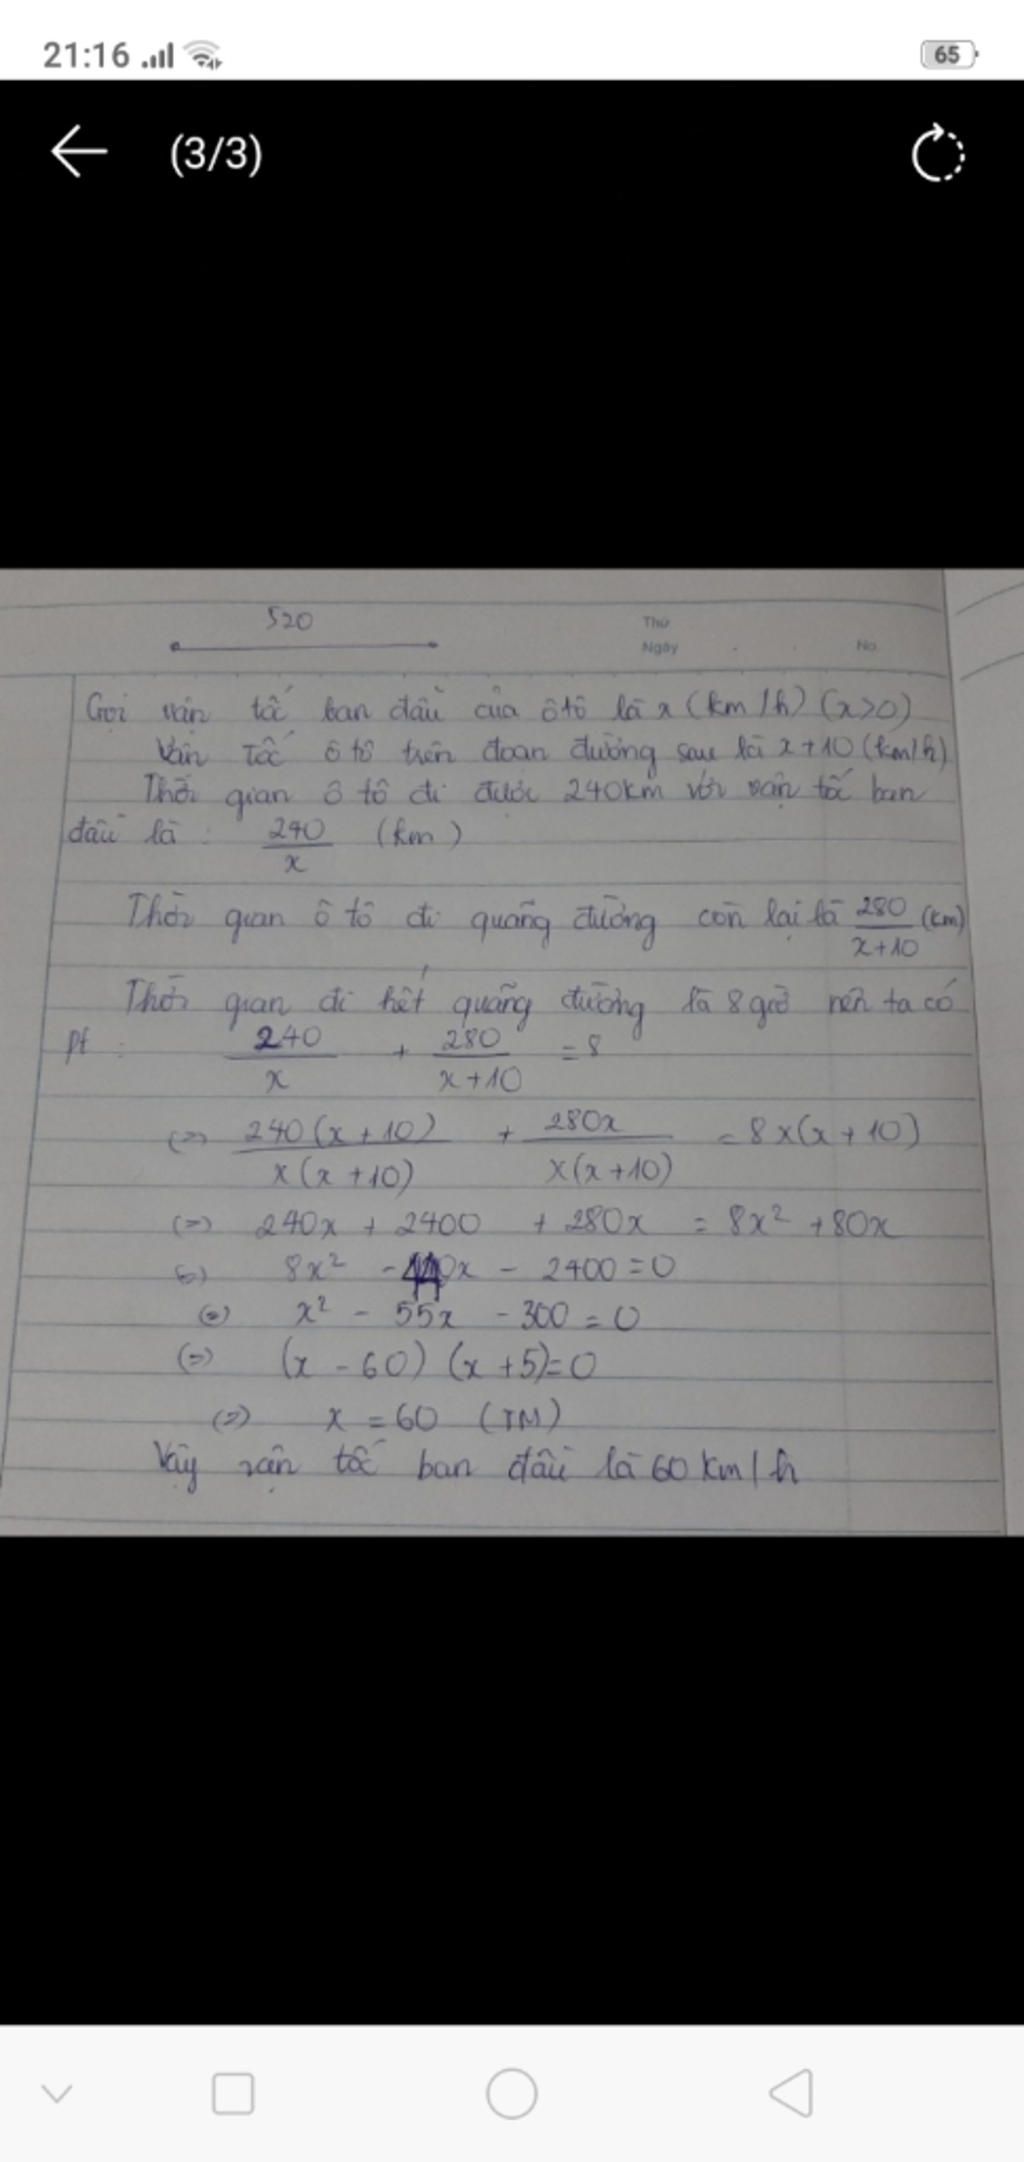 21:16
65
(3/3)
520
Thứ
Ngày
No.
Gọi vận tốc ban đầu của ôtô là x (km/h) (x>0)
Vận tốc ô tô trên đoạn đường sau là x+10 (km/h)
Thời gian ô tô đi được 240km với vận tốc ban
đầu là : 240/x (km)
Thời gian ô tô đi quãng đường còn lại là 280/x+10 (km)
Thời gian đi hết quãng đường là 8 giờ nên ta có
pt : 240/x + 280/x+10 = 8
(=) 240(x+10)/x(x+10) + 280x/x(x+10) = 8x(x+10)
(=) 240x + 2400 + 280x = 8x² + 80x
(=) 8x² - 440x - 2400 = 0
(=) x² - 55x - 300 = 0
(=) (x - 60) (x + 5) = 0
(=) x = 60 (TM)
Vậy vận tốc ban đầu là 60 km/h